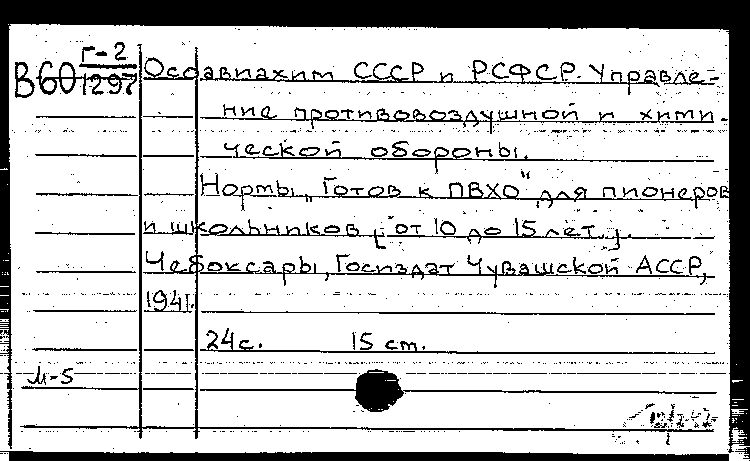 Г-2
В60 1297
Осоавиахим СССР и РСФСР. Управле-
ние противовоздушной и хими-
ческой обороны.
Нормы „Готов к ПВХО" для пионеров
и школьников [от 10 до 15 лет.].
Чебоксары, Госиздат Чувашской АССР,
1941.
24с. 15 см.
М-5